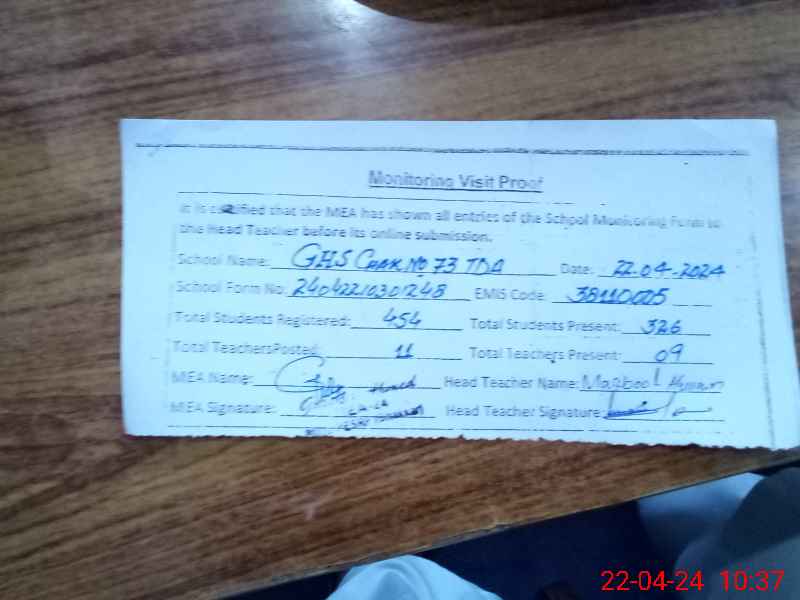 Monitoring Visit Proof
It is certified that the MEA has shown all entries of the School Monitoring Form to
the Head Teacher before its online submission.
School Name: GHS Chak No 73 TDA Date: 22-04-2024
School Form No: 24042210301248 EMIS Code: 38110005
Total Students Registered: 454 Total Students Present: 326
Total TeachersPosted: 11 Total Teachers Present: 09
MEA Name: Head Teacher Name: Maqbool
MEA Signature: Head Teacher Signature:
22-04-24 10:37